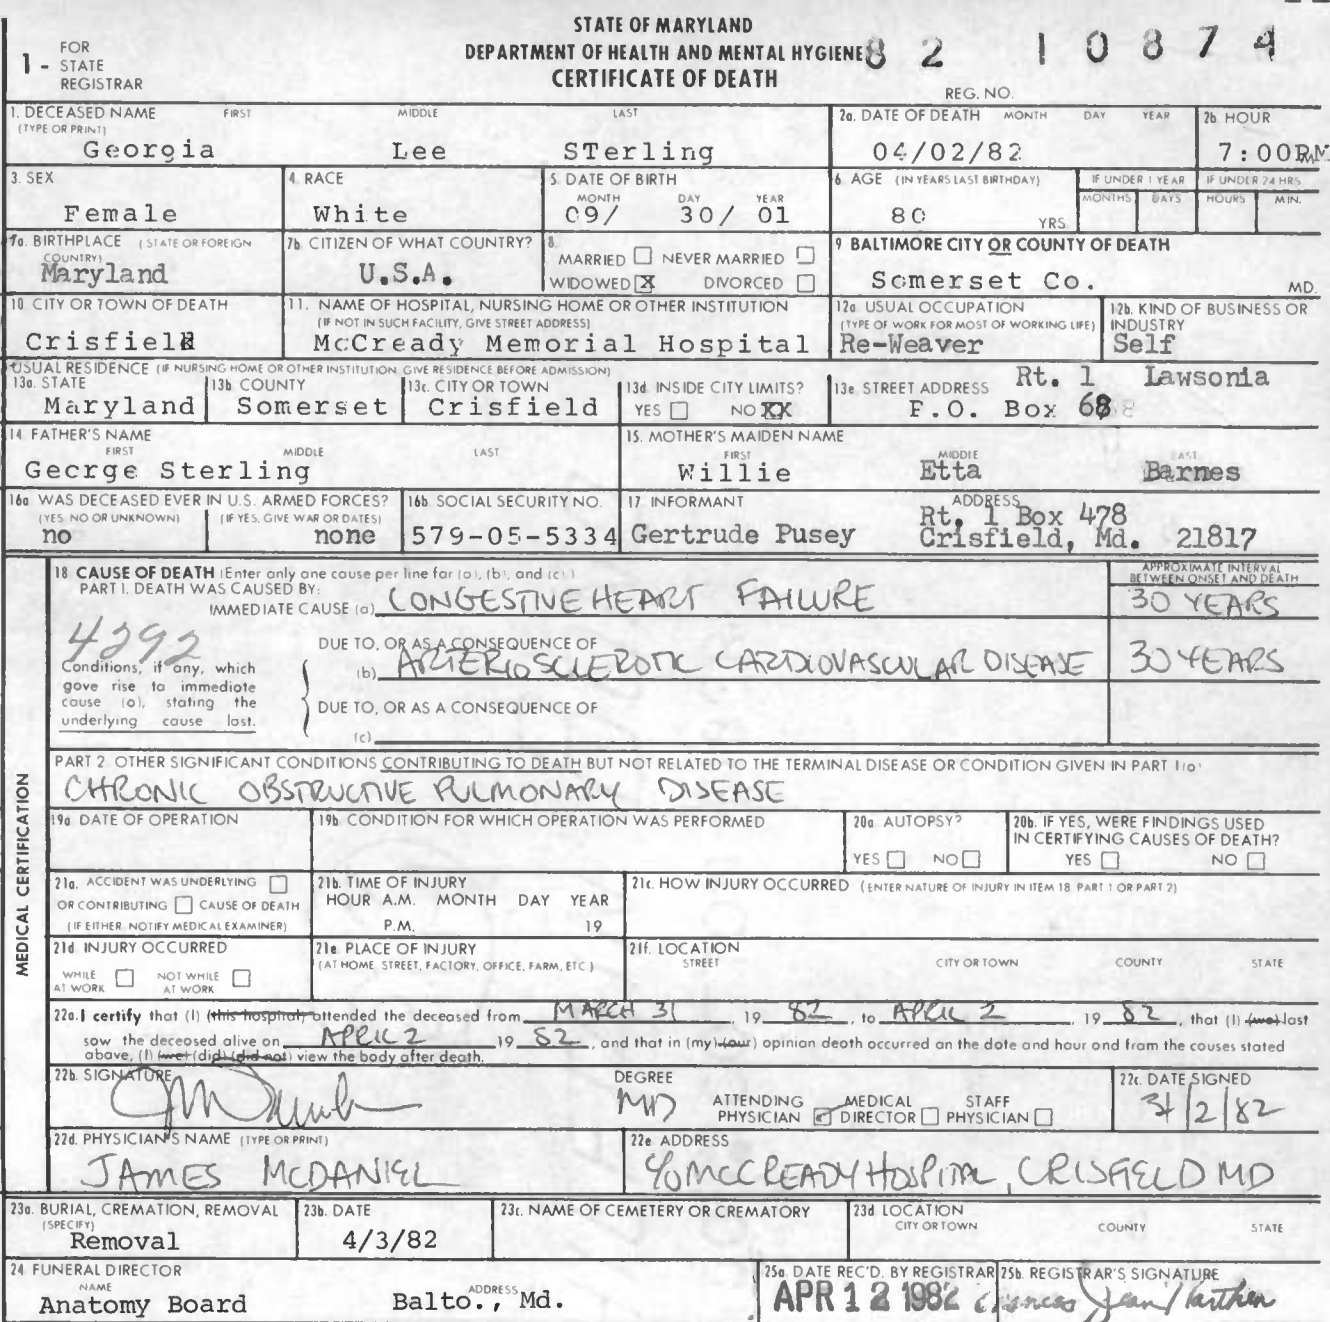 STATE OF MARYLAND
DEPARTMENT OF HEALTH AND MENTAL HYGIENE
CERTIFICATE OF DEATH
82 10874
REG. NO.
1 - FOR STATE REGISTRAR
1. DECEASED NAME FIRST MIDDLE LAST
(TYPE OR PRINT)
Georgia Lee STerling
2a. DATE OF DEATH MONTH DAY YEAR
04/02/82
2b. HOUR
7:00PM
3. SEX
Female
4. RACE
White
5. DATE OF BIRTH
MONTH DAY YEAR
09/ 30/ 01
6. AGE (IN YEARS LAST BIRTHDAY)
80 YRS.
IF UNDER 1 YEAR
MONTHS DAYS
IF UNDER 24 HRS
HOURS MIN.
7a. BIRTHPLACE (STATE OR FOREIGN COUNTRY)
Maryland
7b. CITIZEN OF WHAT COUNTRY?
U.S.A.
8. MARRIED NEVER MARRIED
WIDOWED X DIVORCED
9 BALTIMORE CITY OR COUNTY OF DEATH
Somerset Co. MD.
10 CITY OR TOWN OF DEATH
Crisfield
11. NAME OF HOSPITAL, NURSING HOME OR OTHER INSTITUTION
(IF NOT IN SUCH FACILITY, GIVE STREET ADDRESS)
McCready Memorial Hospital
12a USUAL OCCUPATION
(TYPE OF WORK FOR MOST OF WORKING LIFE)
Re-Weaver
12b. KIND OF BUSINESS OR INDUSTRY
Self
USUAL RESIDENCE (IF NURSING HOME OR OTHER INSTITUTION GIVE RESIDENCE BEFORE ADMISSION)
13a. STATE
Maryland
13b COUNTY
Somerset
13c. CITY OR TOWN
Crisfield
13d. INSIDE CITY LIMITS?
YES NO XX
13e STREET ADDRESS Rt. 1 Lawsonia
P.O. Box 68
14. FATHER'S NAME
FIRST MIDDLE LAST
George Sterling
15. MOTHER'S MAIDEN NAME
FIRST MIDDLE LAST
Willie Etta Barnes
16a WAS DECEASED EVER IN U.S. ARMED FORCES?
(YES, NO OR UNKNOWN) (IF YES, GIVE WAR OR DATES)
no none
16b SOCIAL SECURITY NO.
579-05-5334
17 INFORMANT ADDRESS
Gertrude Pusey Rt. 1 Box 478
Crisfield, Md. 21817
MEDICAL CERTIFICATION
18 CAUSE OF DEATH (Enter only one cause per line for (a), (b), and (c))
APPROXIMATE INTERVAL BETWEEN ONSET AND DEATH
PART I. DEATH WAS CAUSED BY:
IMMEDIATE CAUSE (a) CONGESTIVE HEART FAILURE 30 YEARS
4292
Conditions, if any, which gave rise to immediate cause (a), stating the underlying cause last.
DUE TO, OR AS A CONSEQUENCE OF
(b) ARTERIOSCLEROTIC CARDIOVASCULAR DISEASE 30 YEARS
DUE TO, OR AS A CONSEQUENCE OF
(c)
PART 2. OTHER SIGNIFICANT CONDITIONS CONTRIBUTING TO DEATH BUT NOT RELATED TO THE TERMINAL DISEASE OR CONDITION GIVEN IN PART 1(a)
CHRONIC OBSTRUCTIVE PULMONARY DISEASE
19a DATE OF OPERATION
19b CONDITION FOR WHICH OPERATION WAS PERFORMED
20a AUTOPSY?
YES NO
20b. IF YES, WERE FINDINGS USED IN CERTIFYING CAUSES OF DEATH?
YES NO
21a. ACCIDENT WAS UNDERLYING
OR CONTRIBUTING CAUSE OF DEATH
(IF EITHER, NOTIFY MEDICAL EXAMINER)
21b. TIME OF INJURY
HOUR A.M. MONTH DAY YEAR
P.M. 19
21c. HOW INJURY OCCURRED (ENTER NATURE OF INJURY IN ITEM 18 PART 1 OR PART 2)
21d INJURY OCCURRED
WHILE AT WORK NOT WHILE AT WORK
21e PLACE OF INJURY
(AT HOME, STREET, FACTORY, OFFICE, FARM, ETC.)
21f. LOCATION
STREET CITY OR TOWN COUNTY STATE
22a. I certify that (I) (this hospital) attended the deceased from MARCH 31 19 82, to APRIL 2 19 82, that (I) (we) last
saw the deceased alive on APRIL 2 19 82, and that in (my) (our) opinion death occurred on the date and hour and from the causes stated
above, (I) (we) (did) (did not) view the body after death.
22b. SIGNATURE
DEGREE
MD
ATTENDING PHYSICIAN MEDICAL DIRECTOR STAFF PHYSICIAN
22c. DATE SIGNED
22d. PHYSICIAN'S NAME (TYPE OR PRINT)
JAMES MCDANIEL
22e ADDRESS
c/o MCCREADY HOSPITAL, CRISFIELD MD
23a. BURIAL, CREMATION, REMOVAL
(SPECIFY)
Removal
23b. DATE
4/3/82
23c. NAME OF CEMETERY OR CREMATORY
23d LOCATION
CITY OR TOWN COUNTY STATE
24 FUNERAL DIRECTOR
NAME ADDRESS
Anatomy Board Balto., Md.
25a. DATE REC'D. BY REGISTRAR
APR 12 1982
25b. REGISTRAR'S SIGNATURE
Frances Jean